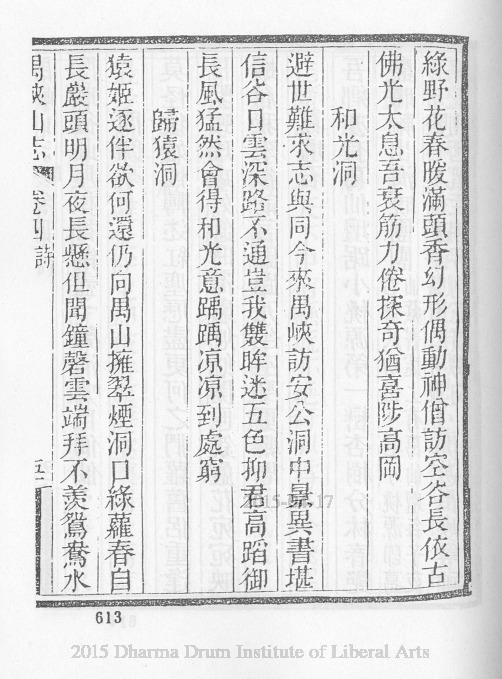 綠野花春暖滿頭香幻形偶動神僧訪空谷長依古
佛光太息吾衰筋力倦探奇猶喜陟高岡
和光洞
避世難求志與同今來禺峽訪安公洞中景異書堪
信谷口雲深路不通豈我雙眸迷五色抑君高蹈御
長風猛然會得和光意踽踽凉凉到處窮
歸猿洞
猿姬逐伴欲何還仍向禺山擁翠煙洞口綠蘿春自
長巖頭明月夜長懸但聞鐘磬雲端拜不羨鴛鴦水
禺峽山志 卷四 詩
613
2015 Dharma Drum Institute of Liberal Arts